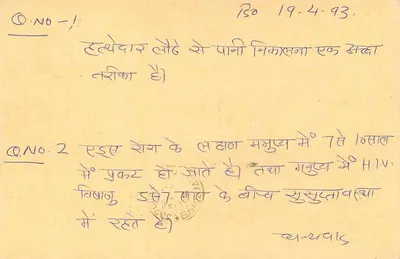 Q.NO-1 19-4-93.
हत्थेदार लौटे से पानी निकालना एक अच्छा
तरीका है।
Q.NO.2 एड्स रोग के लक्षण मनुष्य में 7 से 10 साल
में प्रकट हो जाते है। तथा मनुष्य में H.I.V.
विषाणु 5 से 7 साल के बीच सुसुप्तावस्था
में रहते है।
धन्यवाद